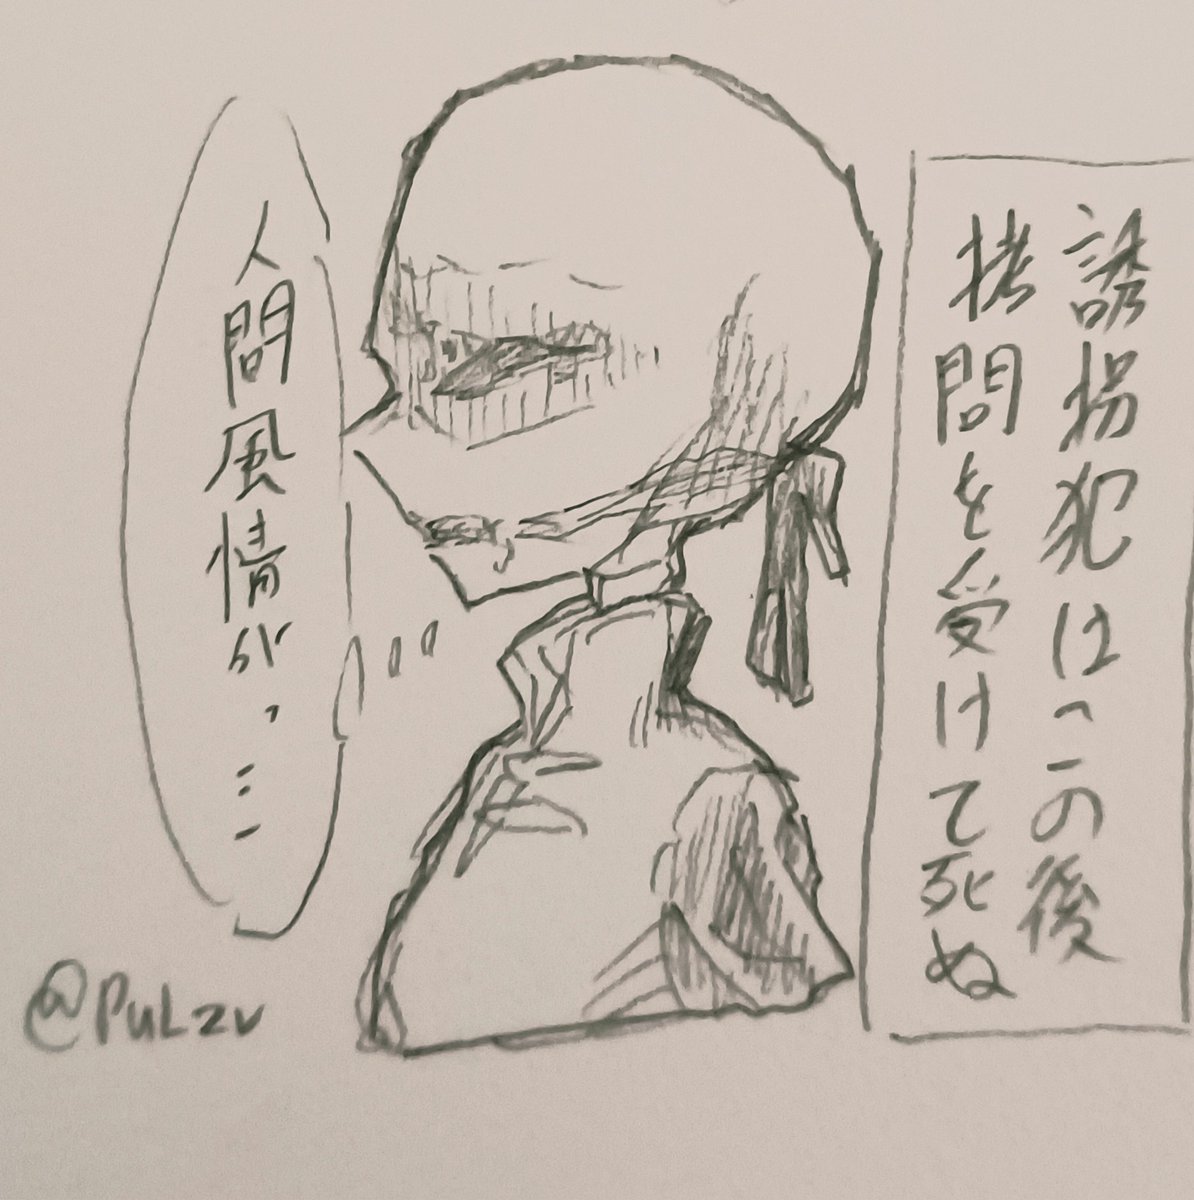 誘拐犯はこの後
拷問を受けて死ぬ
人間風情が、…
@PULZV